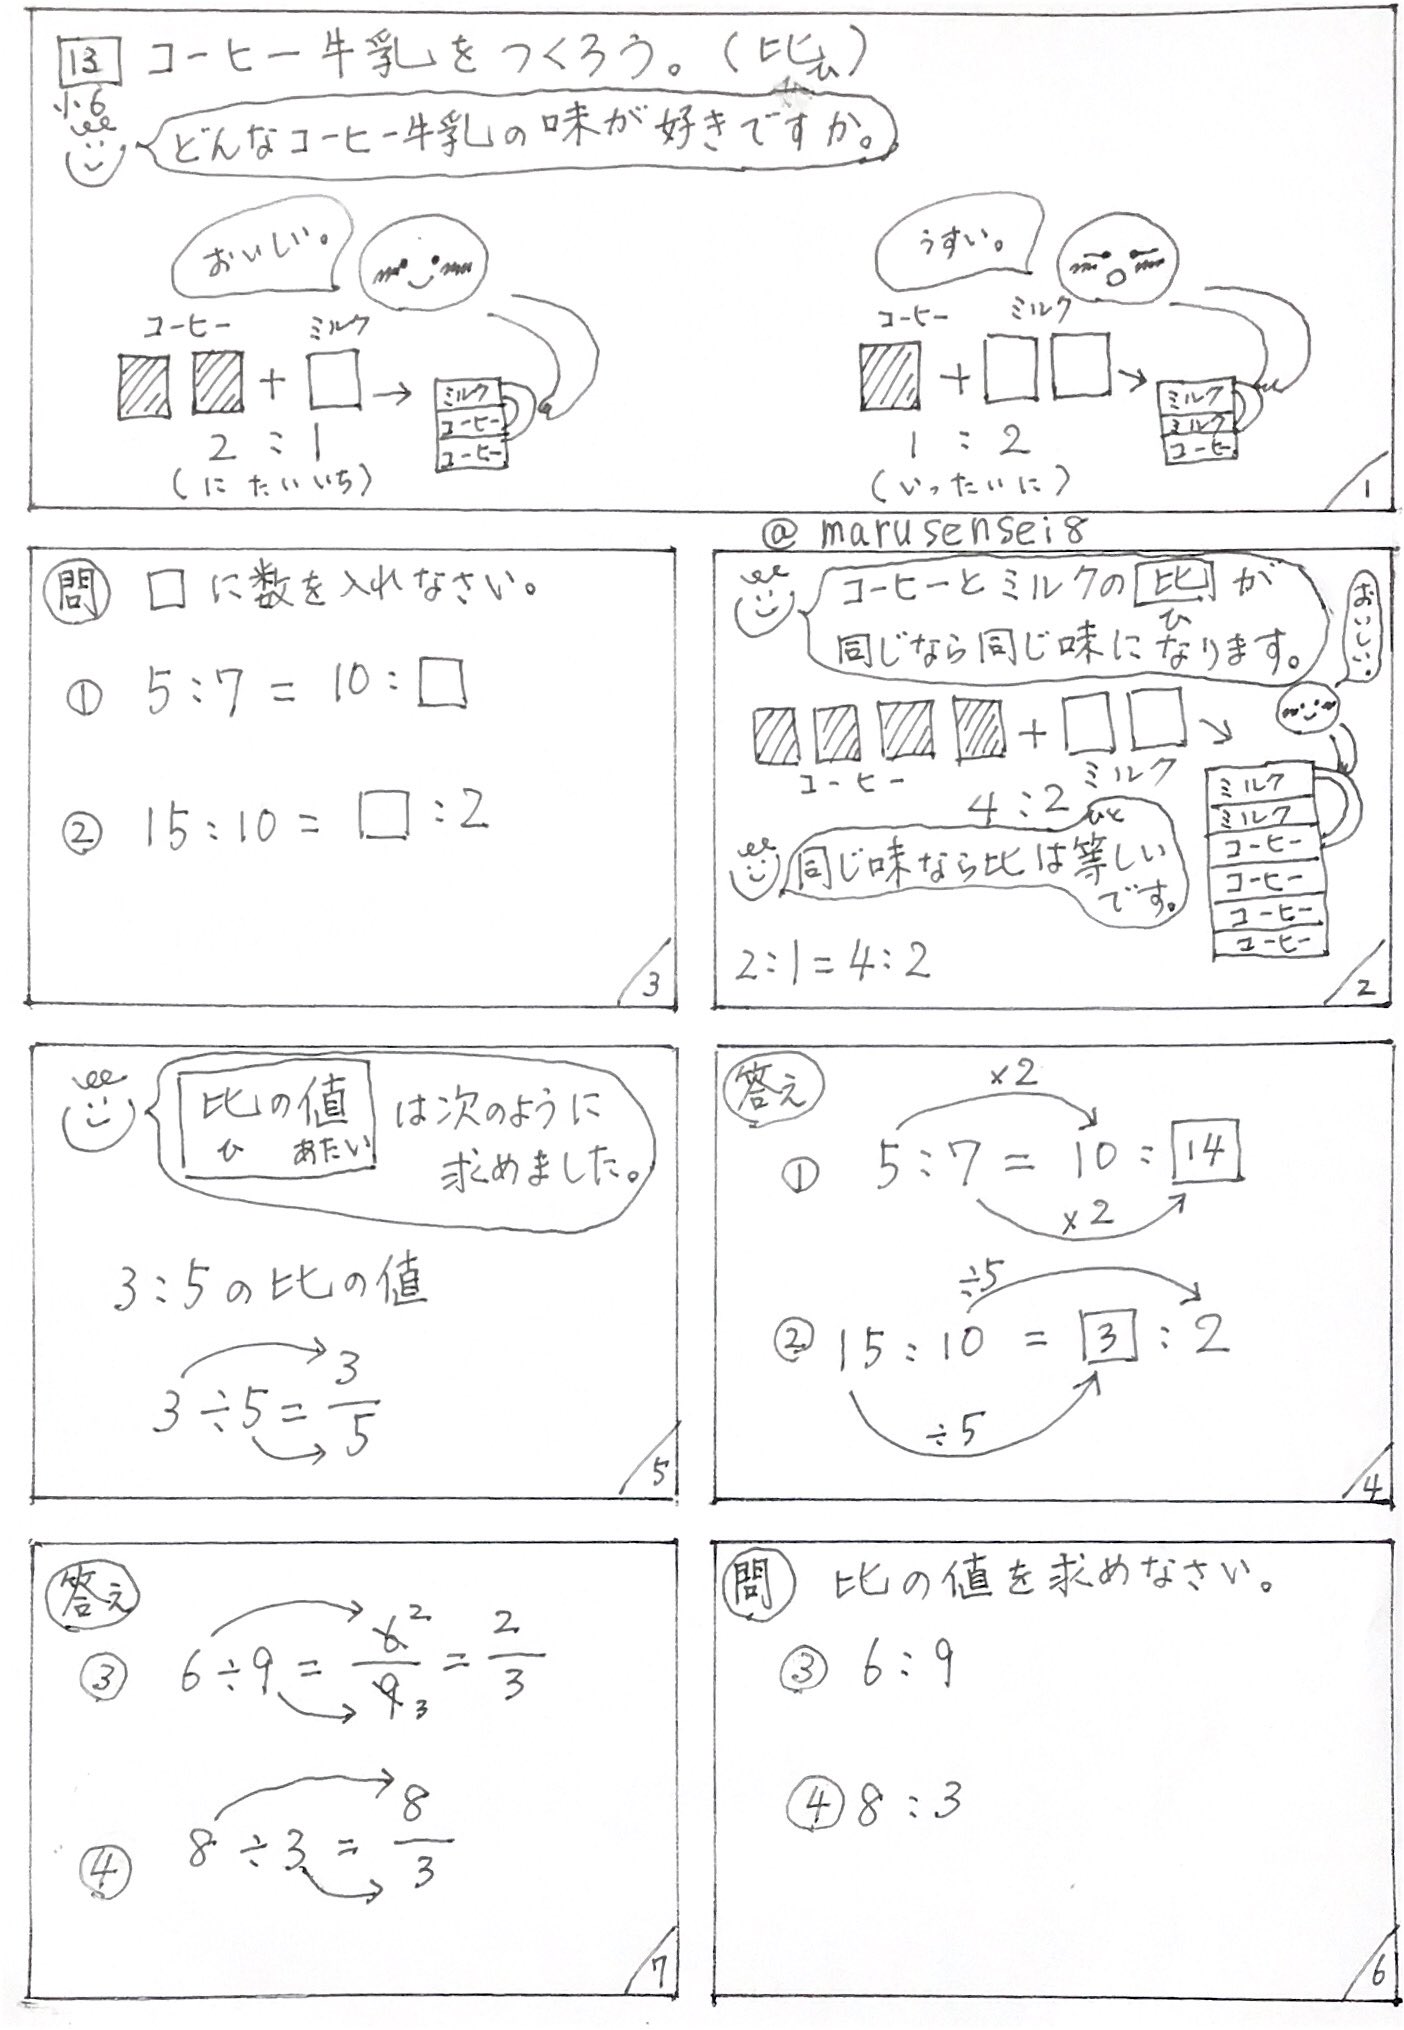 13 コーヒー牛乳をつくろう。(比)
ひ
小6
どんなコーヒー牛乳の味が好きですか。
おいしい。
コーヒー ミルク
+ →
ミルク
コーヒー
コーヒー
2:1
(にたいいち)
うすい。
コーヒー ミルク
+ →
ミルク
ミルク
コーヒー
1:2
(いったいに)
1
@marusensei8
コーヒーとミルクの比が
ひ
同じなら同じ味になります。
おいしい。
+ →
コーヒー ミルク
4:2
ミルク
ミルク
コーヒー
コーヒー
コーヒー
コーヒー
ひと
同じ味なら比は等しい
です。
2:1=4:2
2
問 □に数を入れなさい。
① 5:7=10:□
② 15:10=□:2
3
答え
×2
① 5:7=10:14
×2
÷5
② 15:10=3:2
÷5
4
比の値は次のように
ひ あたい
求めました。
3:5の比の値
3÷5=3/5
5
問 比の値を求めなさい。
③ 6:9
④ 8:3
6
答え
③ 6÷9=6/9=2/3
2
3
④ 8÷3=8/3
7